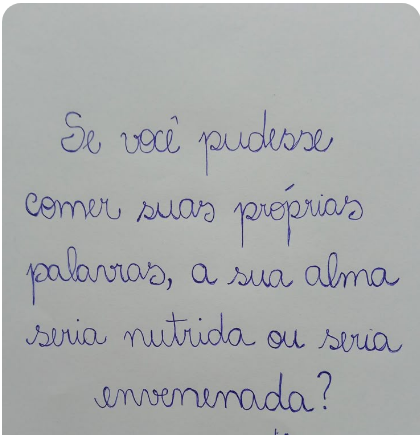 Se você pudesse
comer suas próprias
palavras, a sua alma
seria nutrida ou seria
envenenada?